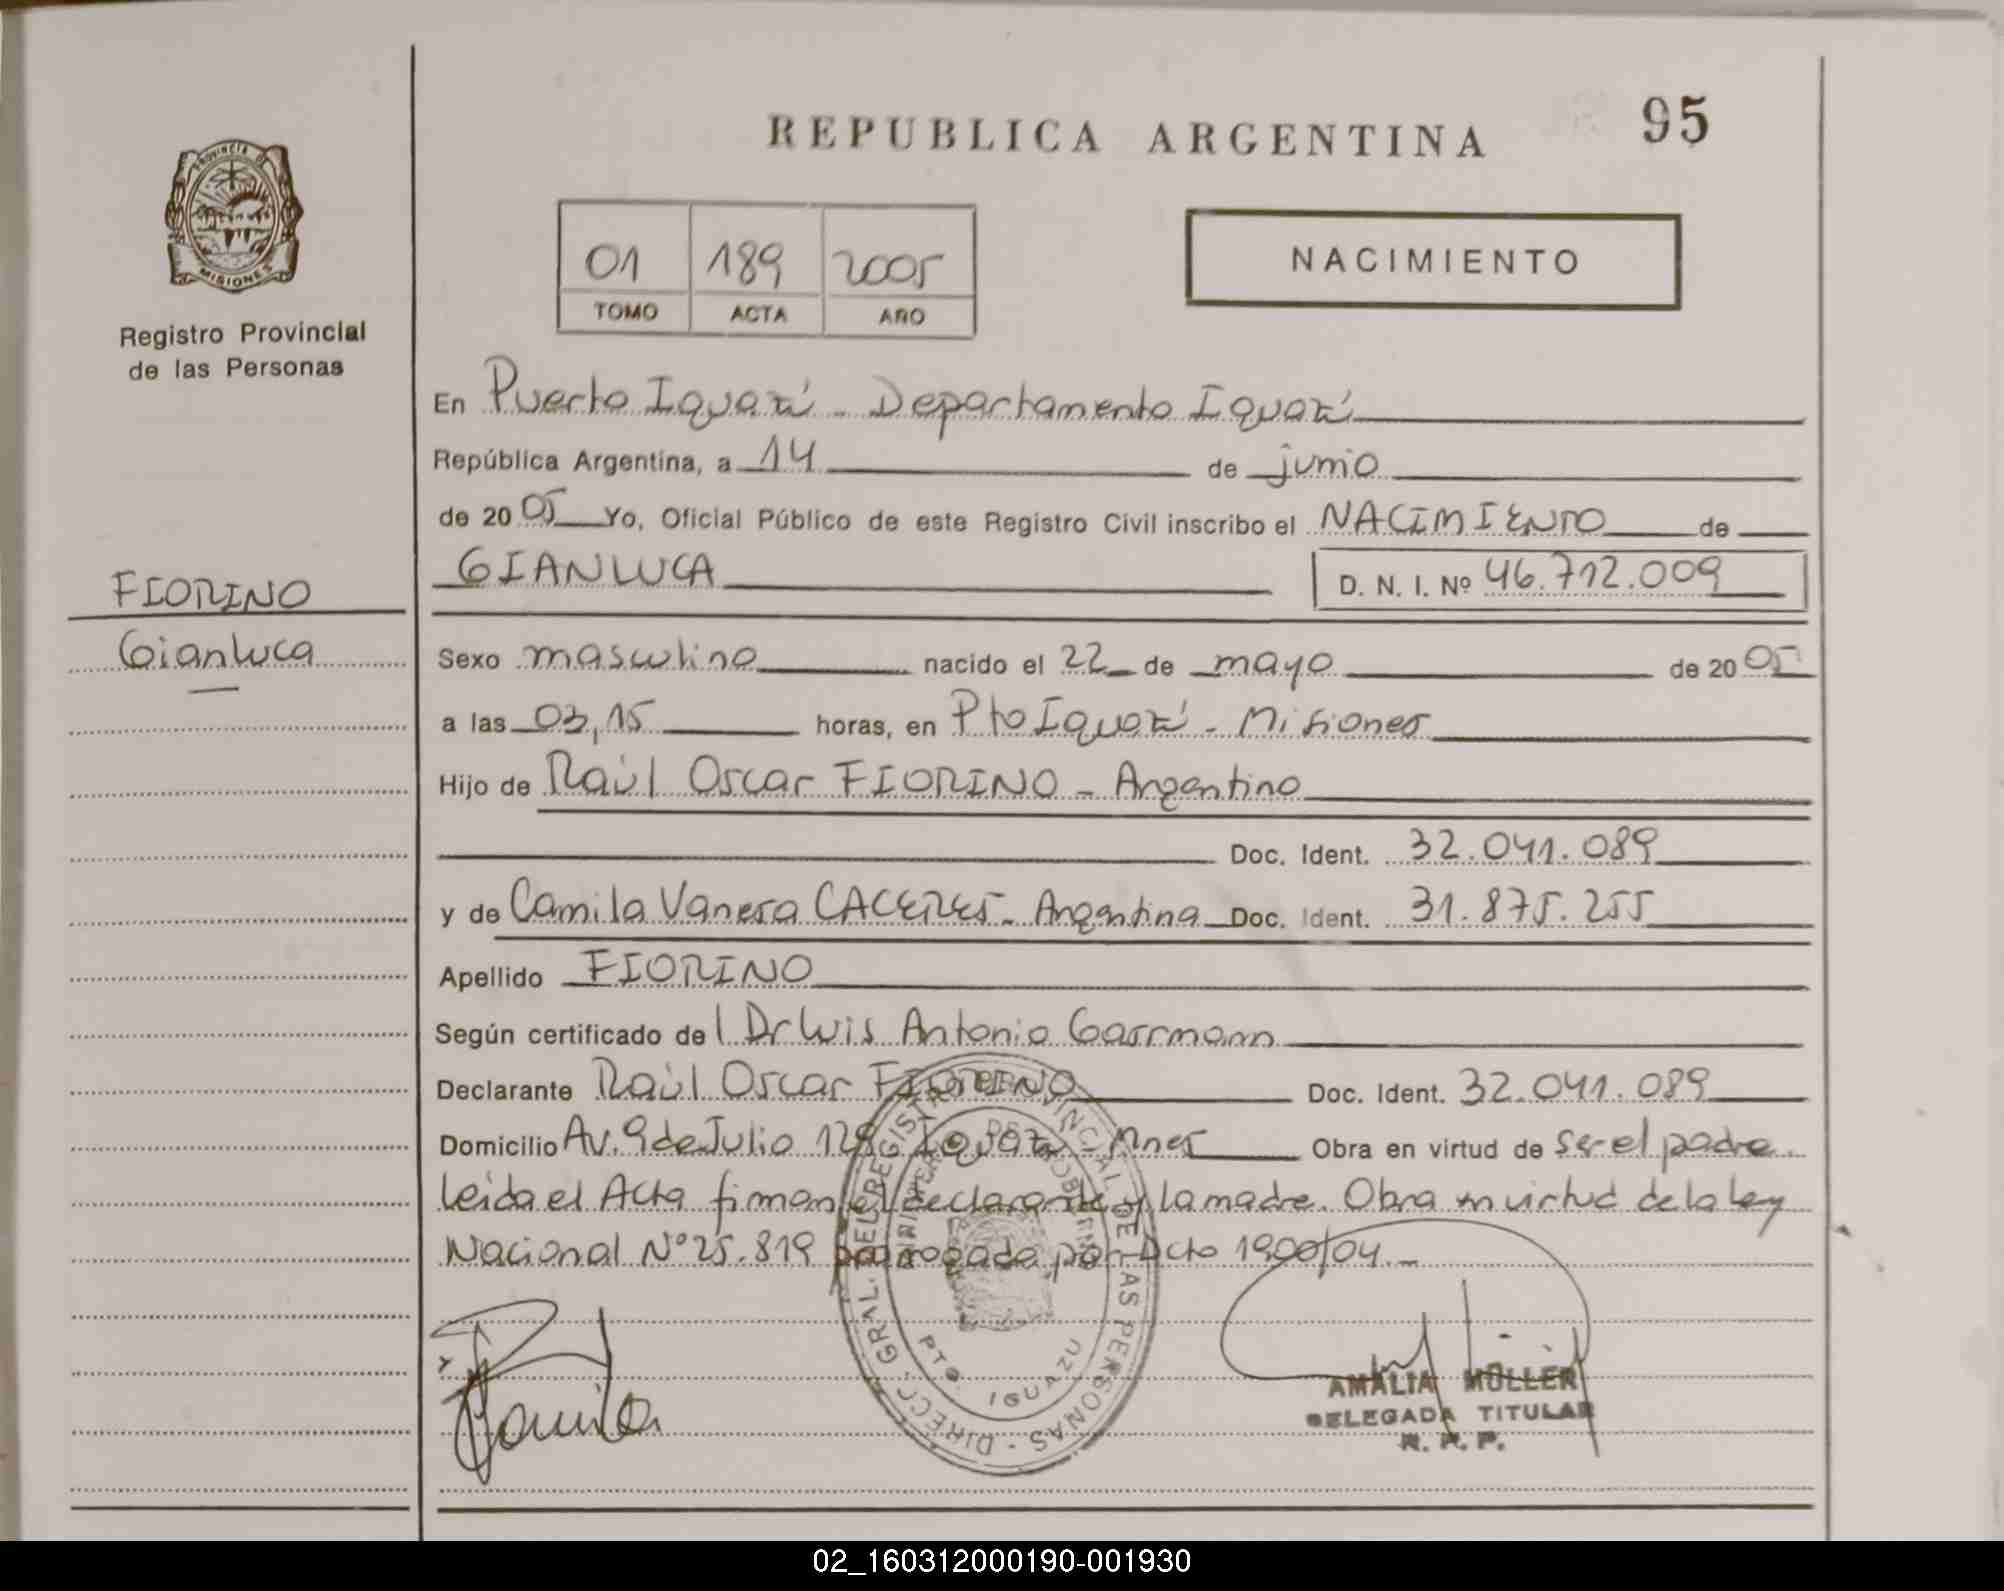 REPUBLICA ARGENTINA
95
PROVINCIA DE
MISIONES
Registro Provincial
de las Personas
01 189 2005
TOMO ACTA AÑO
NACIMIENTO
En Puerto Iguazú - Departamento Iguazú
República Argentina, a 14 de junio
de 2005 Yo, Oficial Público de este Registro Civil inscribo el NACIMIENTO de
GIANLUCA D. N. I. Nº 46.712.009
FIORINO
Gianluca
Sexo masculino nacido el 22 de mayo de 2005
a las 03,15 horas, en Pto Iguazú - Misiones
Hijo de Raúl Oscar FIORINO - Argentino
Doc. Ident. 32.041.089
y de Camila Vanesa CACERES - Argentina Doc. Ident. 31.875.255
Apellido FIORINO
Según certificado del Dr Luis Antonio Garrmann
Declarante Raúl Oscar FIORINO Doc. Ident. 32.041.089
Domicilio Av. 9 de Julio 129 Iguazú - Mnes Obra en virtud de ser el padre.
Leida el Acta firman el declarante y la madre. Obra en virtud de la ley
Nacional Nº 25.819 prorrogada por Dcto 1900/04.-
DIRECC. GRAL. DEL REGISTRO PROVINCIAL DE LAS PERSONAS
PTO. IGUAZU
Camila
AMALIA MÜLLER
DELEGADA TITULAR
R. P. P.
02_160312000190-001930